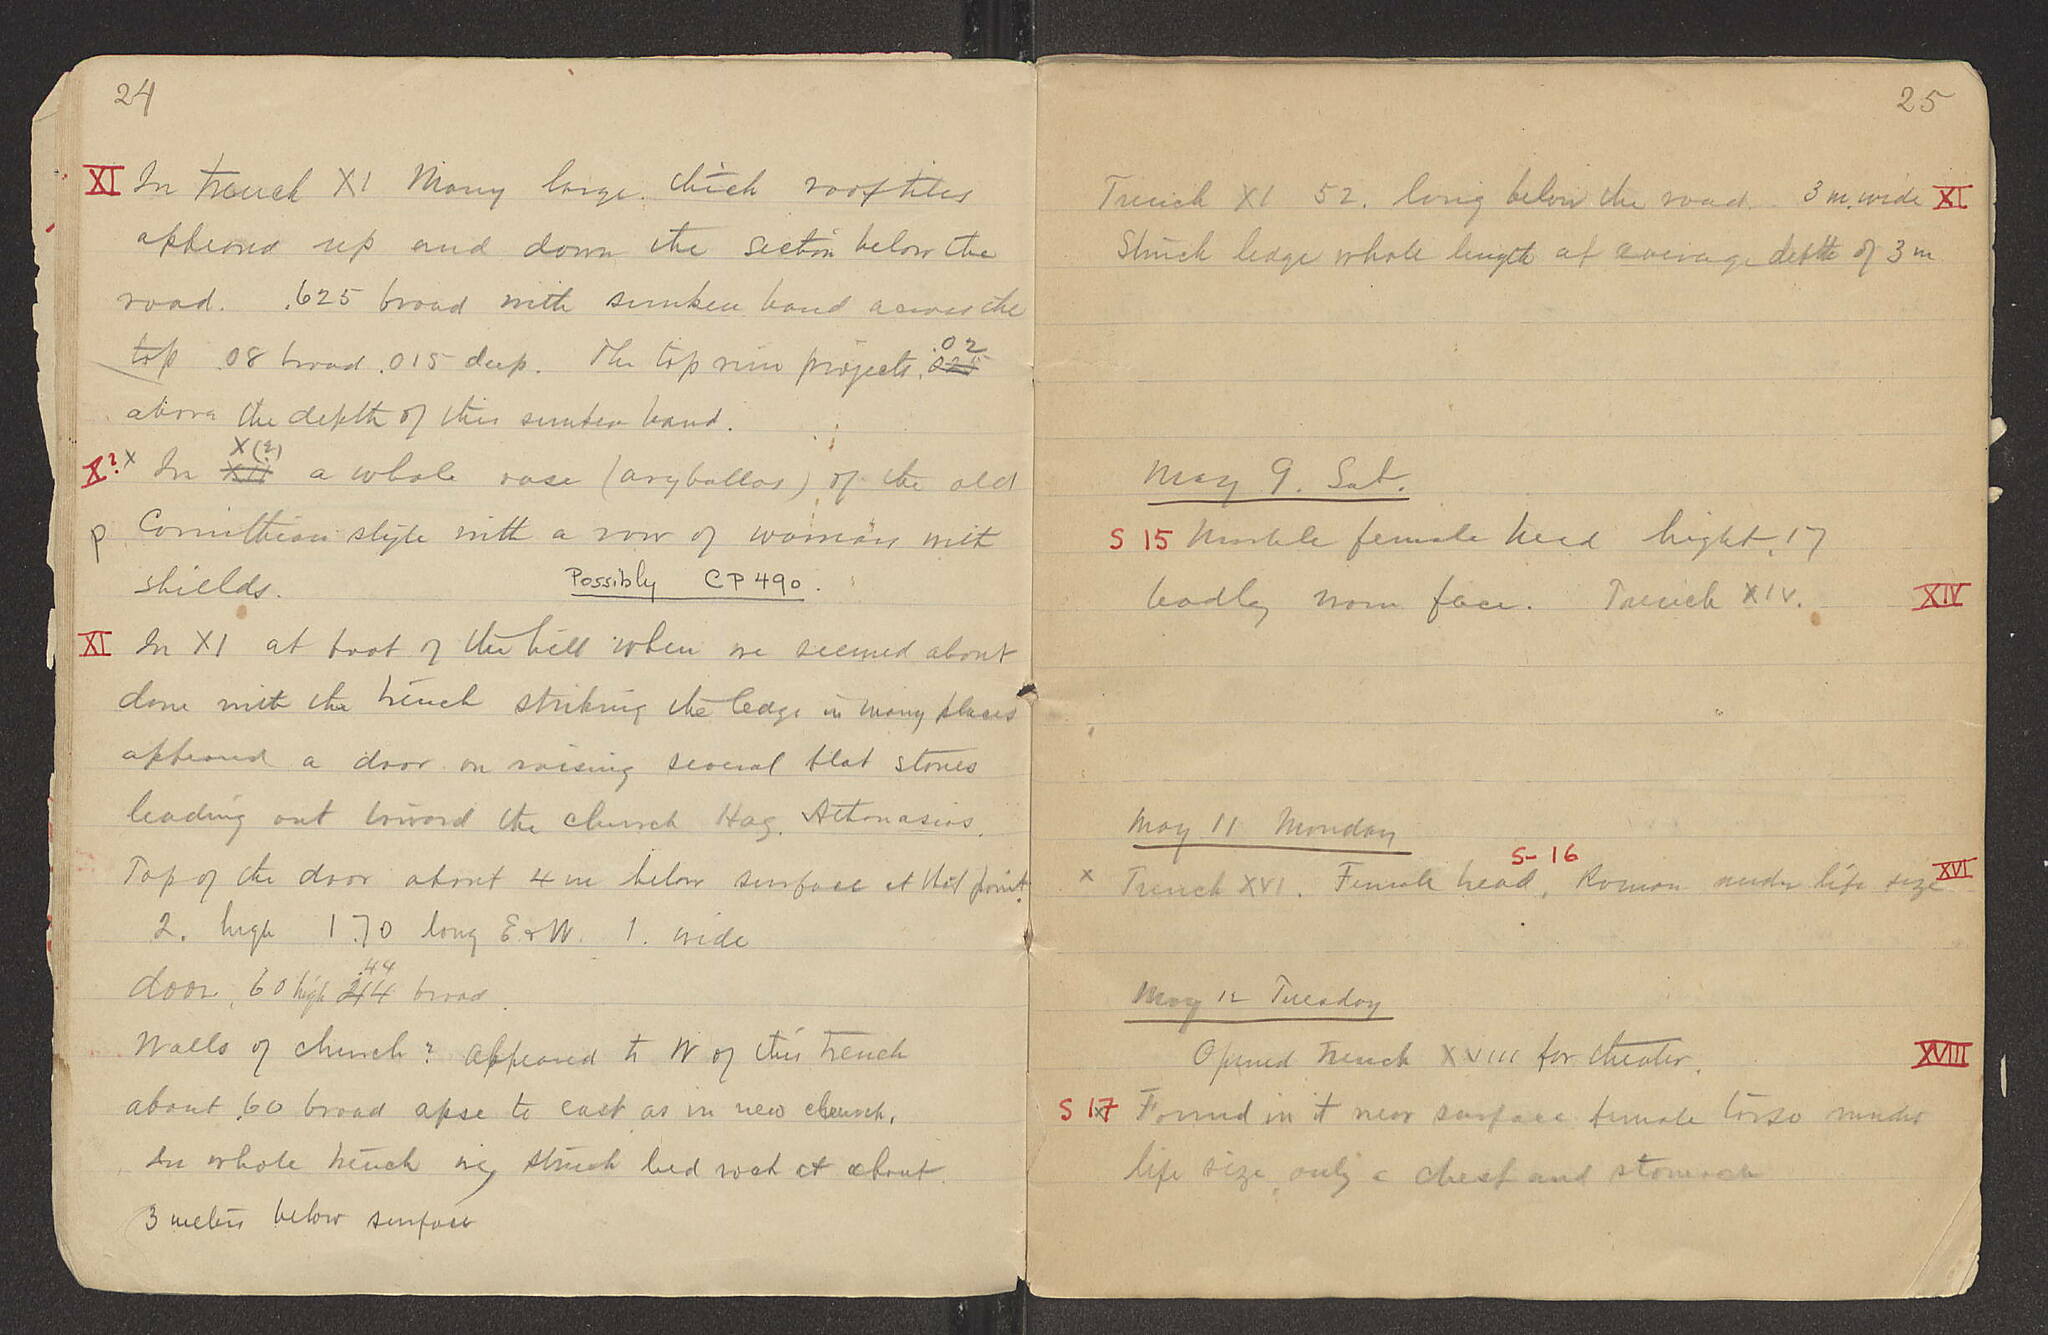 24
XI In trench XI Many large thick rooftiles
appeared up and down the section below the
road. .625 broad with sunken band across the
top .08 broad .015 deep. The top rim projects .025 .02
above the depth of this sunken band.
X? x In XII X(?) a whole vase (aryballos) of the old
P Corinthian style with a row of woman with
shields. Possibly CP490.
XI In XI at foot of the hill when we seemed about
done with the trench striking the ledge in many places
appeared a door on raising several flat stones
leading out toward the church Hag. Athanasios.
Top of the door about 4 m below surface at that point.
2. high 1.70 long E & W. 1. wide
door .60 high .44 broad
Walls of church? appeared to W of this trench
about .60 broad apse to east as in new church.
In whole trench we struck bed rock at about
3 meters below surface
25
Trench XI 52. long below the road 3 m. wide XI
Struck ledge whole length at average depth of 3 m
May 9. Sat.
S 15 Marble female head hight .17
badly worn face. Trench XIV. XIV
May 11 Monday
x Trench XVI. Female head, S-16 Roman under life size XVI
May 12 Tuesday
Opened trench XVIII for theater. XVIII
S 17 x Found in it near surface female torso under
life size only c chest and stomach